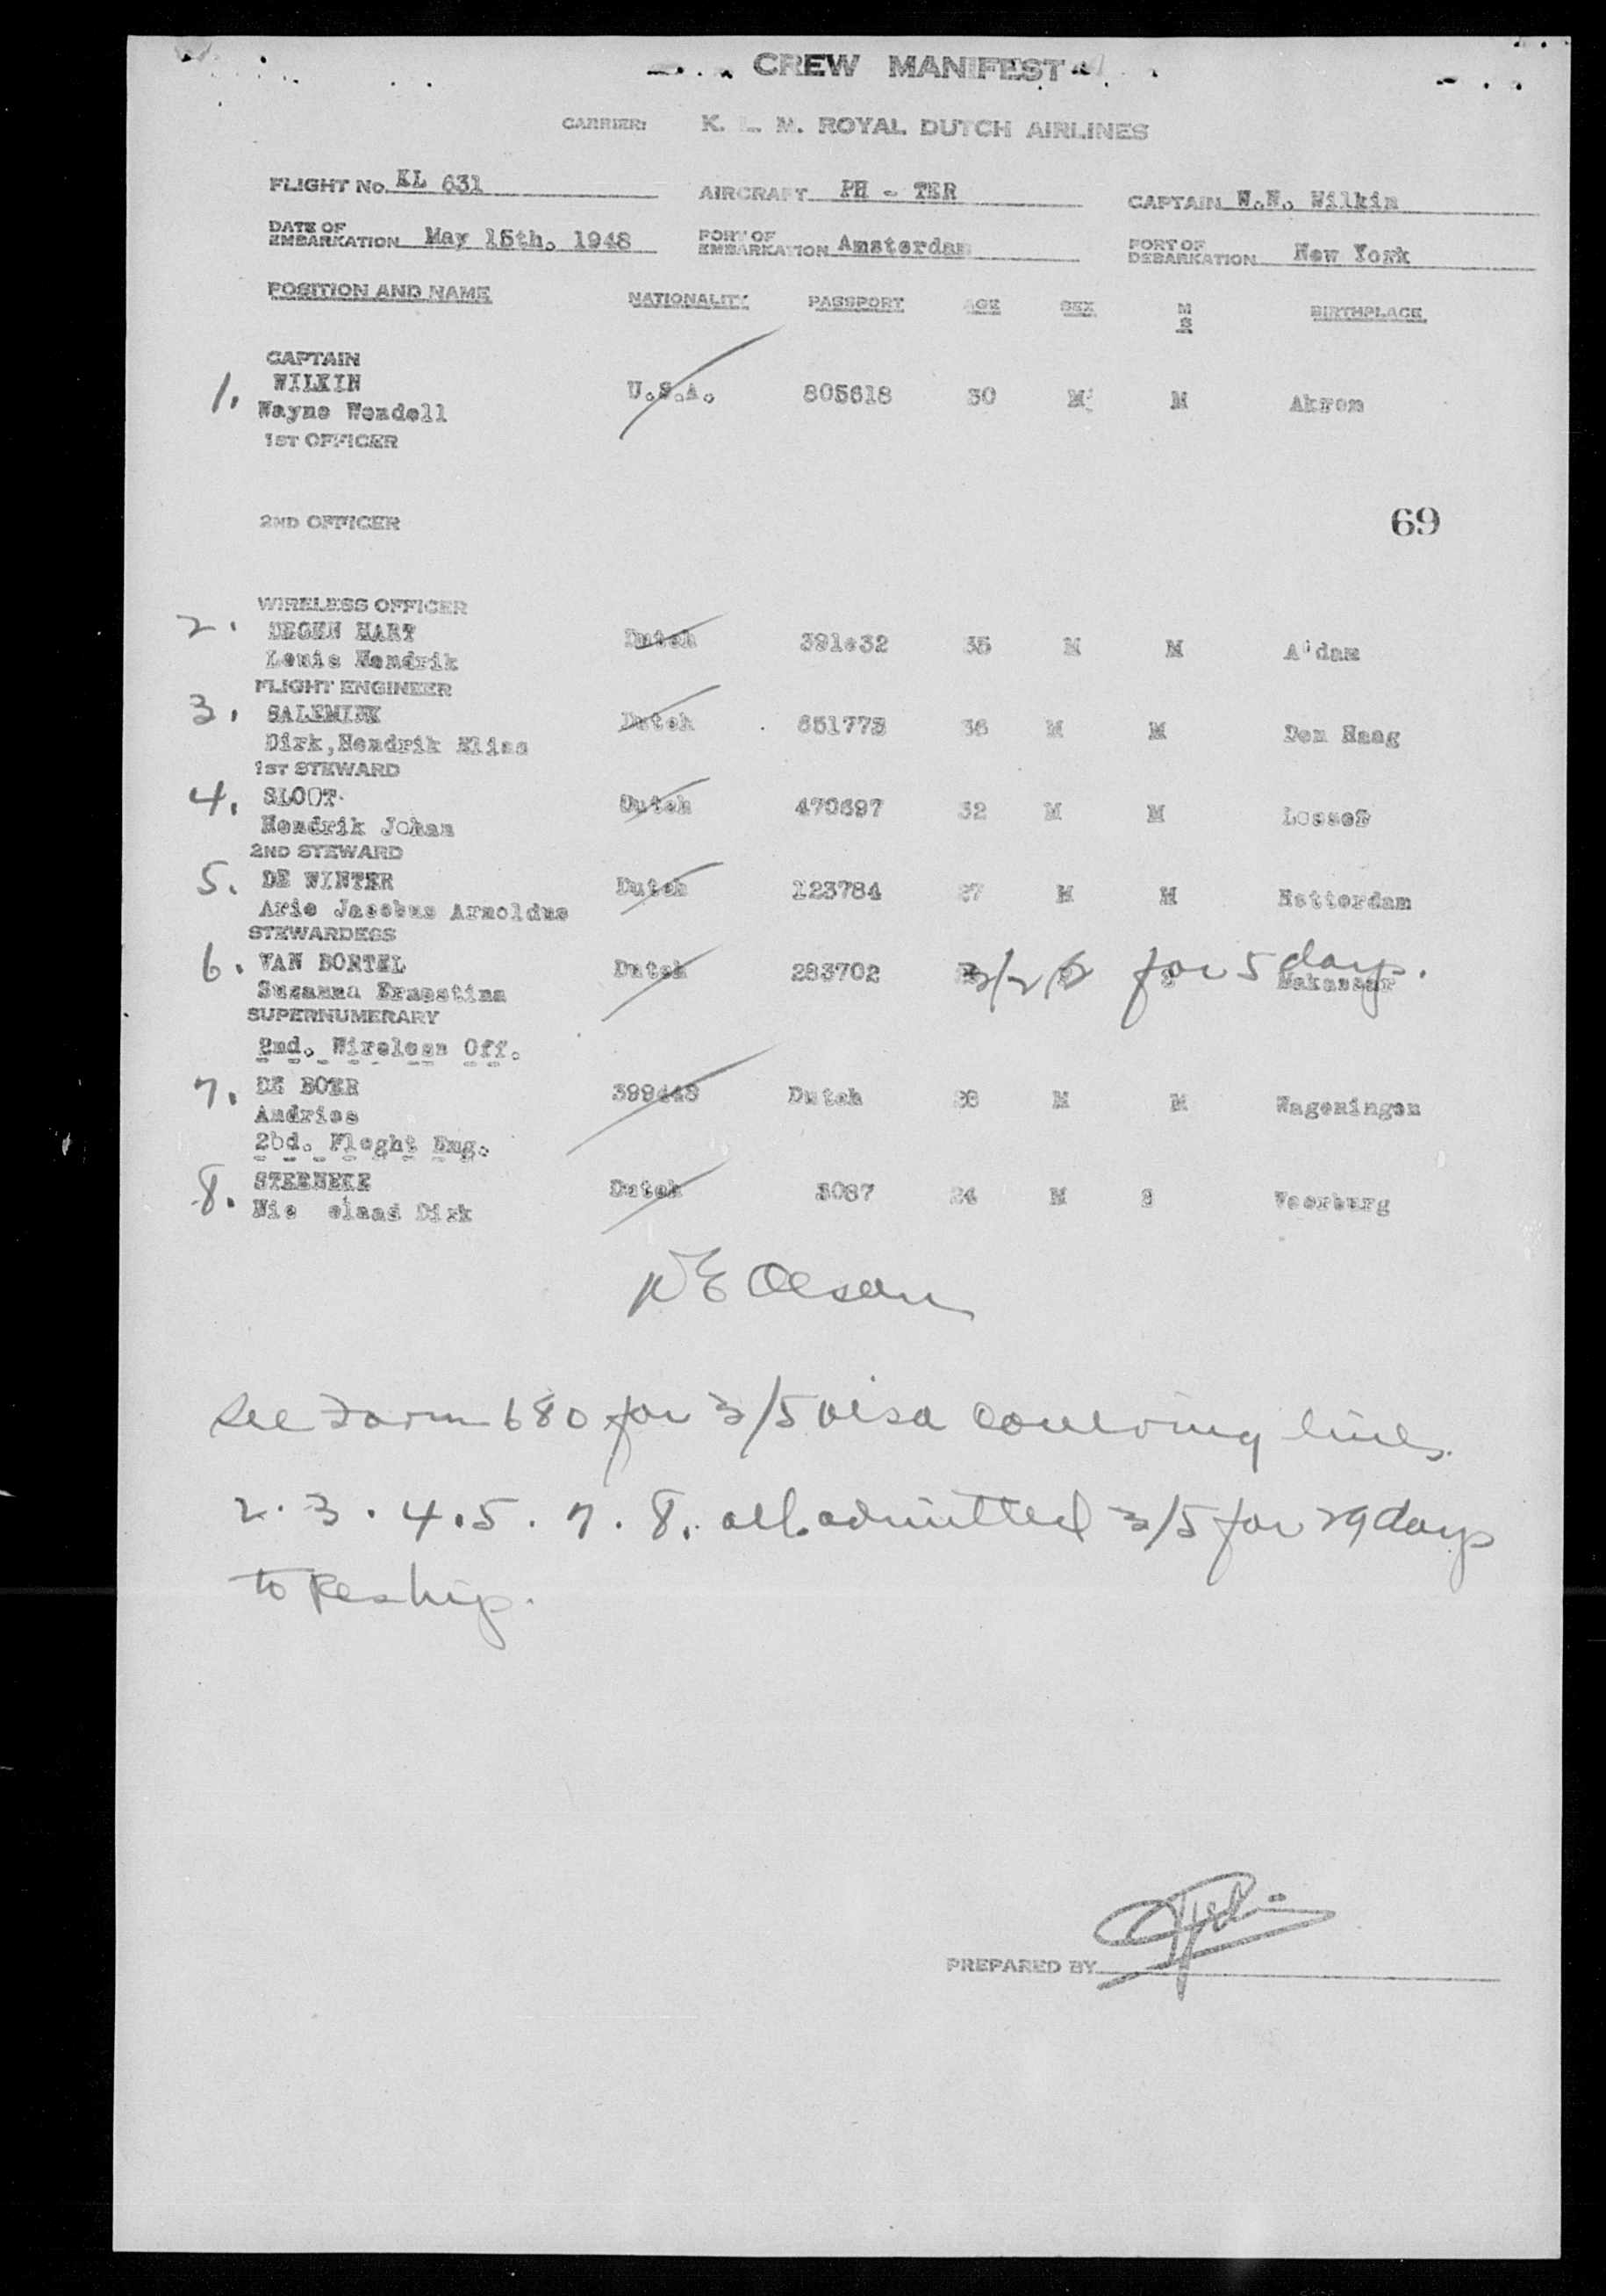 CREW MANIFEST
CARRIER: K. L. M. ROYAL DUTCH AIRLINES
FLIGHT No. KL 631 AIRCRAFT PH - TER CAPTAIN W.W. Wilkin
DATE OF EMBARKATION May 15th. 1948 PORT OF EMBARKATION Amsterdam PORT OF DEBARKATION New York
POSITION AND NAME NATIONALITY PASSPORT AGE SEX M S BIRTHPLACE
CAPTAIN
1. WILKIN U.S.A. 805618 30 M M Akron
Wayne Wendell
1ST OFFICER
2ND OFFICER 69
WIRELESS OFFICER
2. DEGEN HART Dutch 391e32 35 M M A'dam
Louis Hendrik
FLIGHT ENGINEER
3. SALEMINK Dutch 651773 36 M M Den Haag
Dirk,Hendrik Elias
1ST STEWARD
4. SLOOT Dutch 470697 32 M M
Hendrik Johan
2ND STEWARD
5. DE WINTER Dutch 123784 27 M M Rotterdam
Arie Jacobus Arnoldus
STEWARDESS
6. VAN BORTEL Dutch 283702 3/2 for 5 days. Makassar
Suzanna Ernestina
SUPERNUMERARY
2nd. Wireless Off.
7. DE BOER 399448 Dutch 28 M M Wageningen
Andries
2bd. Fleght Eng.
8. STERNEKE Dutch 3087 24 M S Voorburg
Nic olaas Dirk
W E Olsen
See Form 680 for 3/5 visa covering lines.
2. 3. 4. 5. 7. 8. all admitted 3/5 for 29 days
to Reship.
PREPARED BY